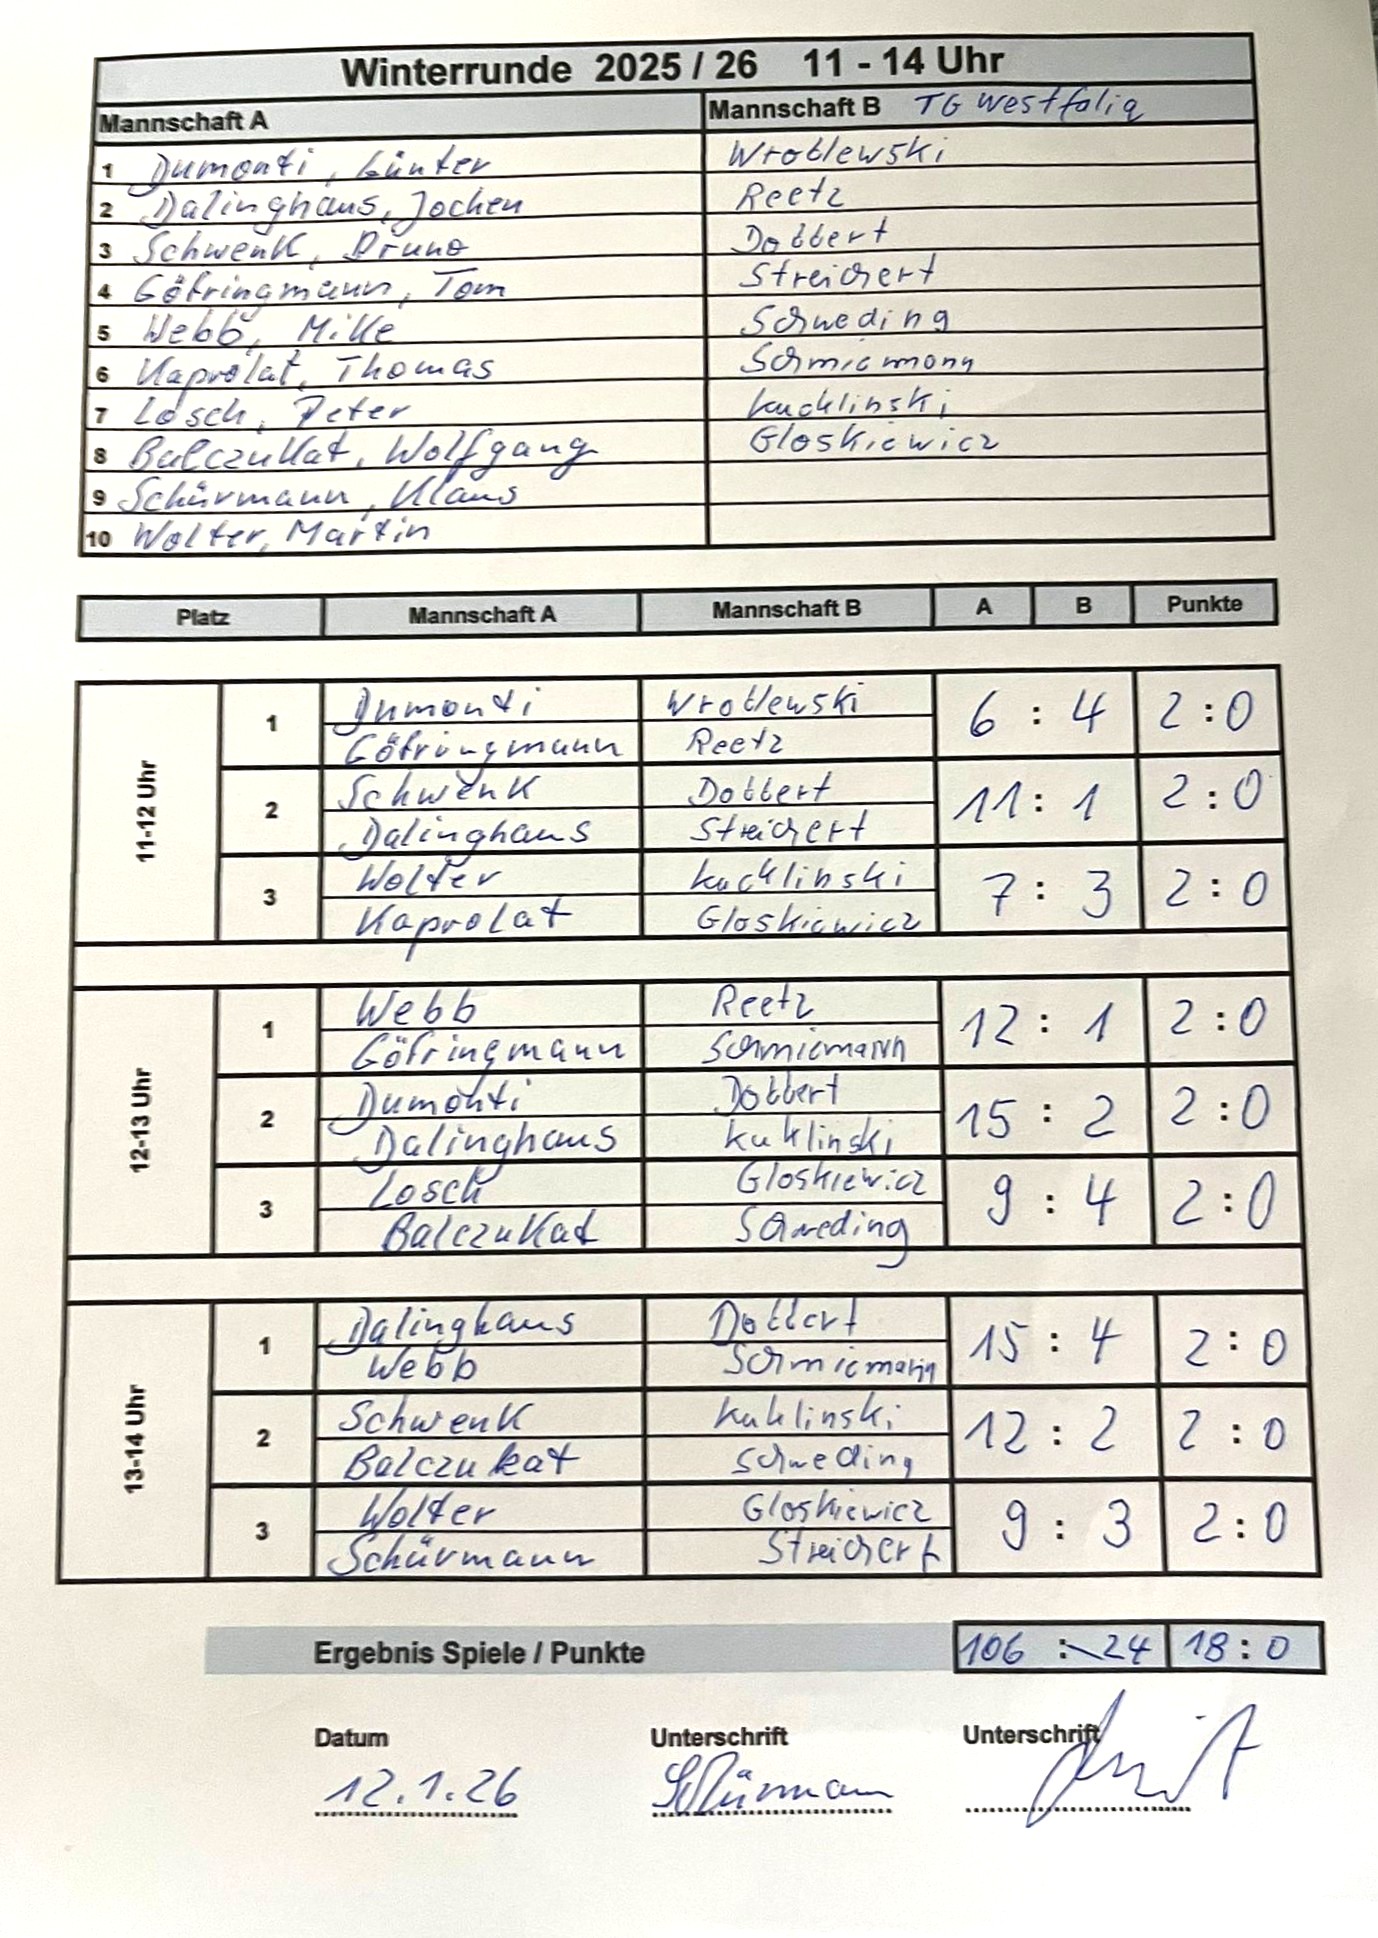 Winterrunde 2025 / 26 11 - 14 Uhr
Mannschaft A Mannschaft B TG Westfalia
1 Dumonti, Günter Wroblewski
2 Dalinghaus, Jochen Reetz
3 Schwenk, Bruno Dobbert
4 Göfringmann, Tom Streichert
5 Webb, Mike Schweding
6 Kaprolat, Thomas Schmiemann
7 Losch, Peter Kucklinski
8 Balczukat, Wolfgang Gloskiewicz
9 Schürmann, Klaus
10 Wolter, Martin
Platz Mannschaft A Mannschaft B A B Punkte
11-12 Uhr
1 Dumonti Wroblewski 6 : 4 2 : 0
Göfringmann Reetz
2 Schwenk Dobbert 11 : 1 2 : 0
Dalinghaus Streichert
3 Wolter Kucklinski 7 : 3 2 : 0
Kaprolat Gloskiewicz
12-13 Uhr
1 Webb Reetz 12 : 1 2 : 0
Göfringmann Schmiemann
2 Dumonti Dobbert 15 : 2 2 : 0
Dalinghaus Kuklinski
3 Losch Gloskiewicz 9 : 4 2 : 0
Balczukat Schweding
13-14 Uhr
1 Dalinghaus Dobbert 15 : 4 2 : 0
Webb Schmiemann
2 Schwenk Kuklinski 12 : 2 2 : 0
Balczukat Schweding
3 Wolter Gloskiewicz 9 : 3 2 : 0
Schürmann Streichert
Ergebnis Spiele / Punkte 106 : 24 18 : 0
Datum Unterschrift Unterschrift
12.1.26 Schürmann